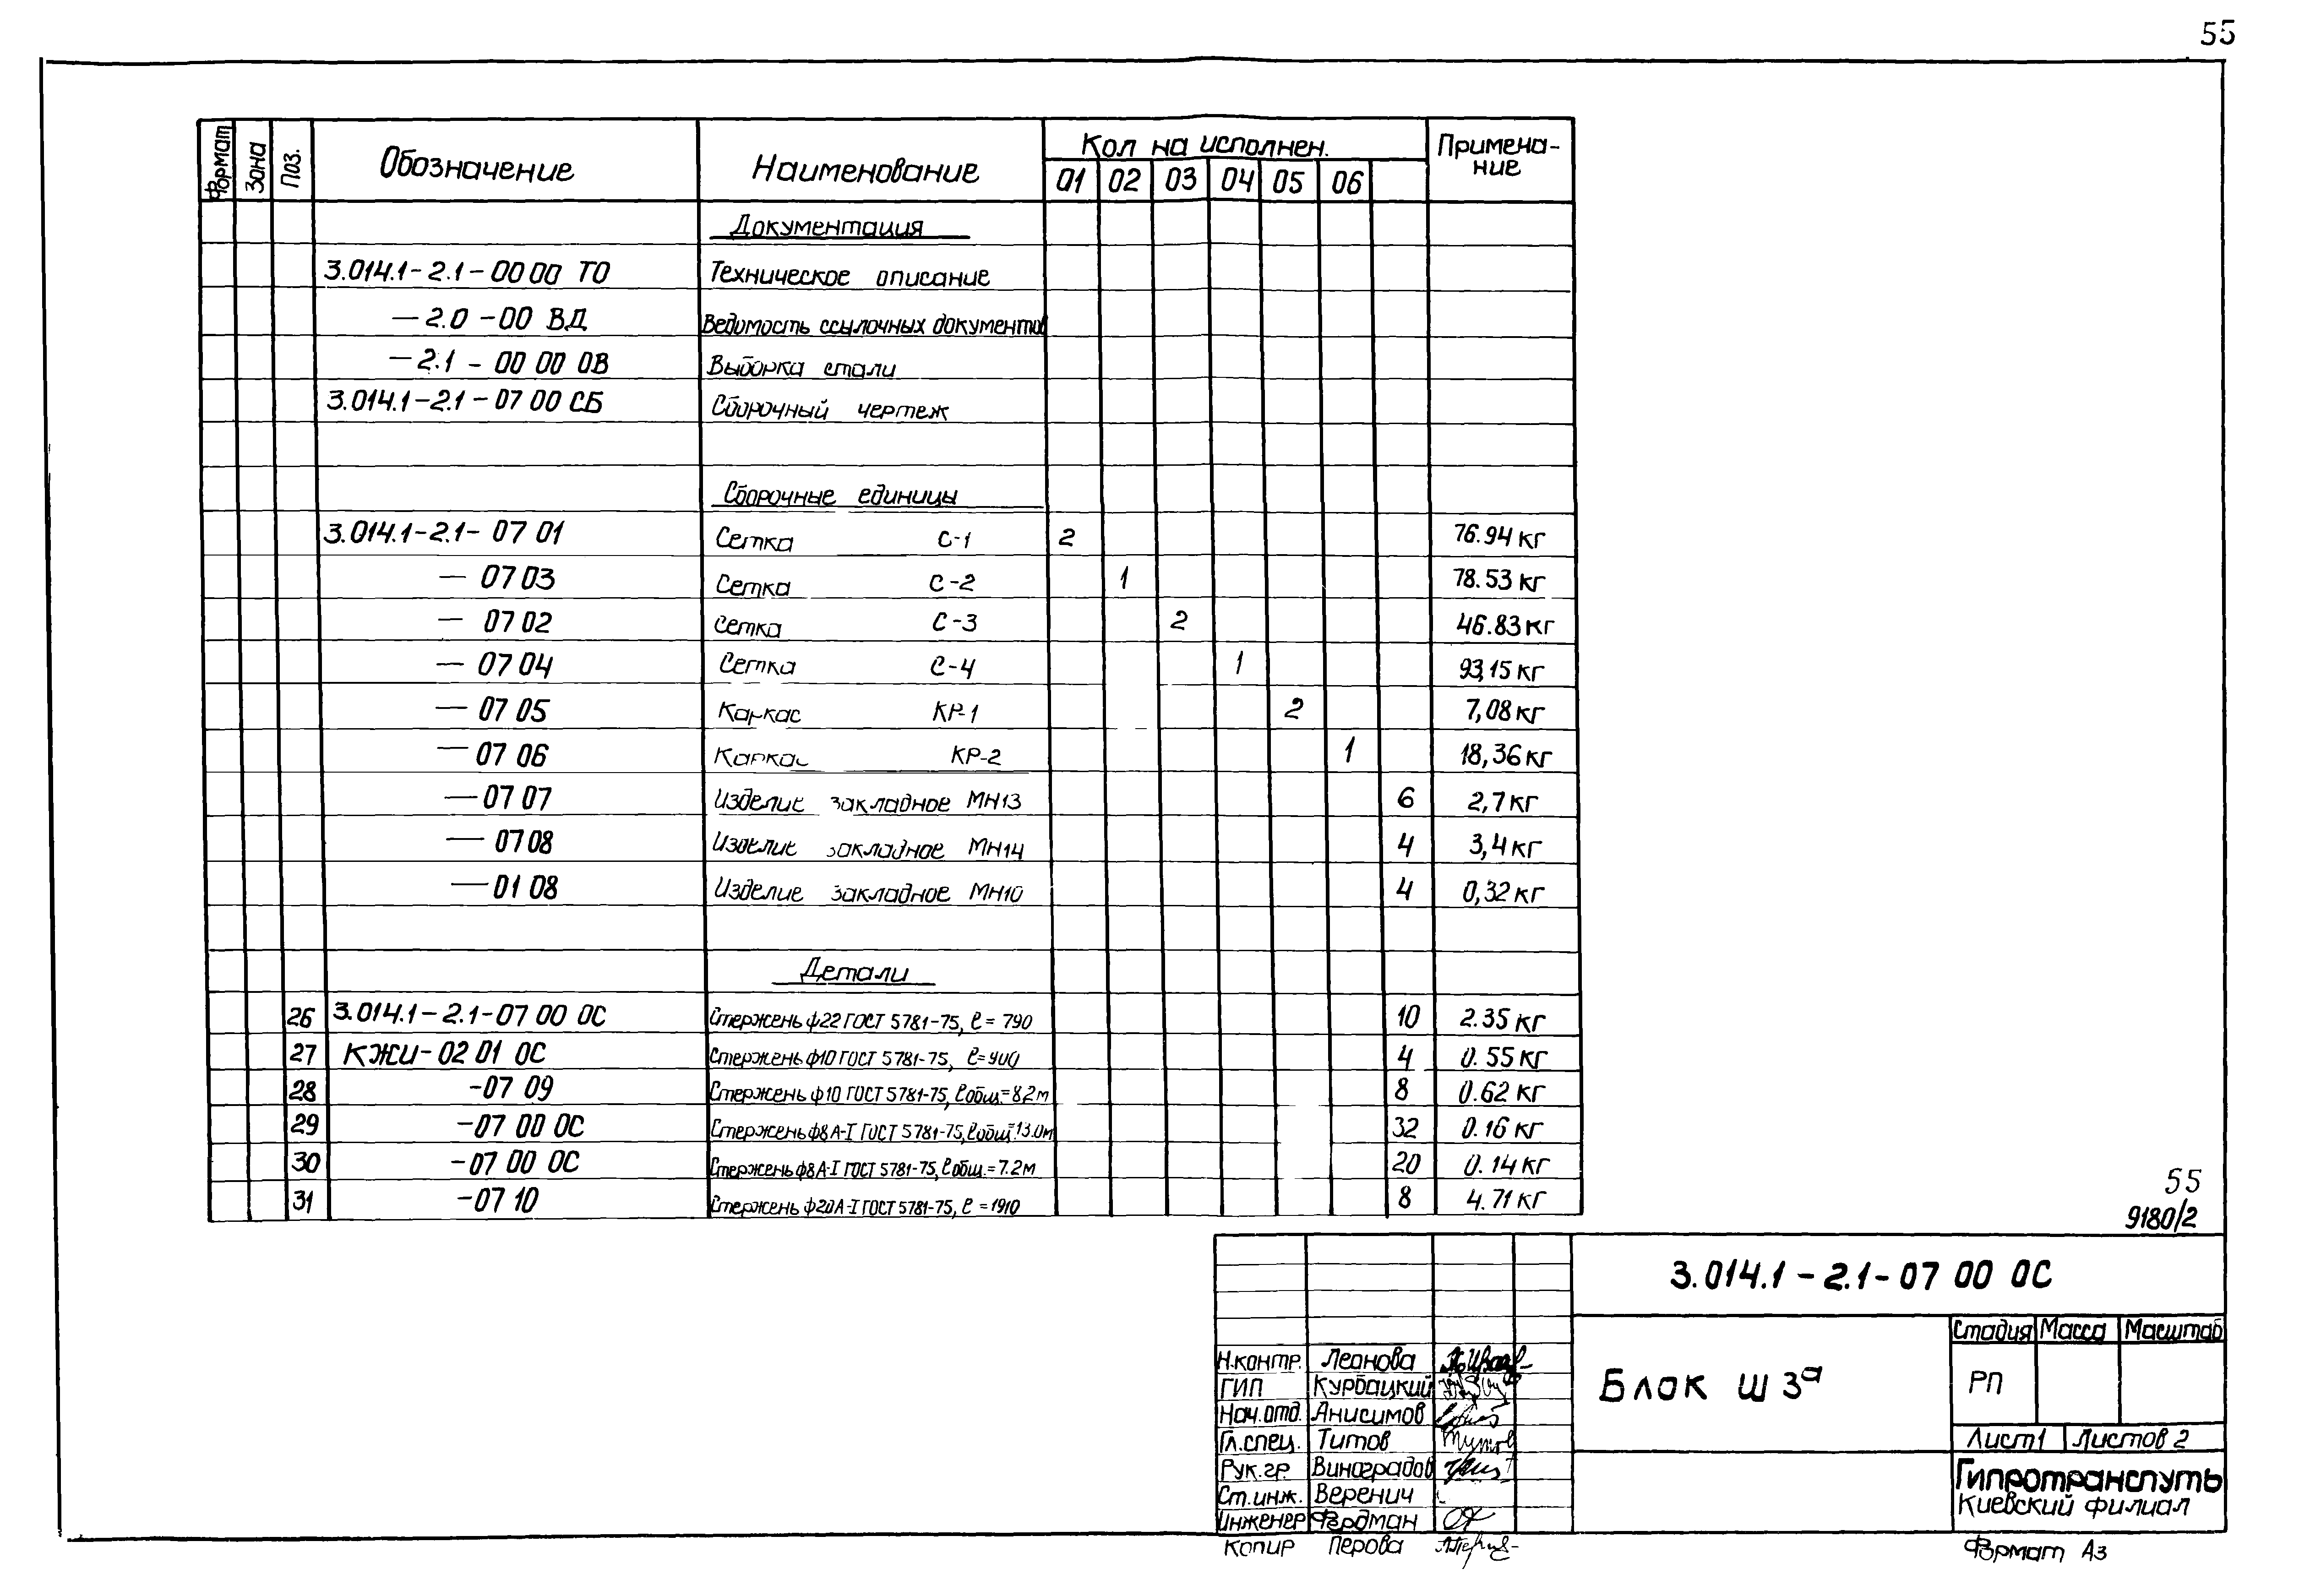 55
Формат Зона Поз. Обозначение Наименование Кол на исполнен. Примеча-
ние
01 02 03 04 05 06
Документация
3.014.1-2.1-00 00 ТО Техническое описание
-2.0-00 ВД Ведомость ссылочных документов
-2.1-00 00 ОВ Выборка стали
3.014.1-2.1-07 00 СБ Сборочный чертеж
Сборочные единицы
3.014.1-2.1-07 01 Сетка С-1 2 76.94 кг
— 07 03 Сетка С-2 1 78.53 кг
— 07 02 Сетка С-3 2 46.83 кг
— 07 04 Сетка С-4 1 93,15 кг
— 07 05 Каркас КР-1 2 7,08 кг
— 07 06 Каркас КР-2 1 18,36 кг
— 07 07 Изделие закладное МН13 6 2,7 кг
— 07 08 Изделие закладное МН14 4 3,4 кг
— 01 08 Изделие закладное МН10 4 0,32 кг
Детали
26 3.014.1-2.1-07 00 ОС Стержень ф22 ГОСТ 5781-75, ℓ = 790 10 2.35 кг
27 КЖИ-02 01 ОС Стержень ф10 ГОСТ 5781-75, ℓ=900 4 0.55 кг
28 -07 09 Стержень ф10 ГОСТ 5781-75, ℓобщ.=8.2м 8 0.62 кг
29 -07 00 ОС Стержень ф8 А-I ГОСТ 5781-75, ℓобщ=13.0м 32 0.16 кг
30 -07 00 ОС Стержень ф8 А-I ГОСТ 5781-75, ℓобщ.=7.2м 20 0.14 кг
31 -07 10 Стержень ф20 А-I ГОСТ 5781-75, ℓ=1910 8 4.71 кг
55
9180/2
3.014.1-2.1-07 00 ОС
Блок Ш 3ᵃ
Стадия Масса Масштаб
РП
Лист 1 Листов 2
Гипротранспуть
Киевский филиал
Н.контр. Леонова
ГИП Курбацкий
Нач.отд. Анисимов
Гл.спец. Титов
Рук.гр. Виноградов
Ст.инж. Веренич
Инженер Фердман
Копир Перова
Формат А3